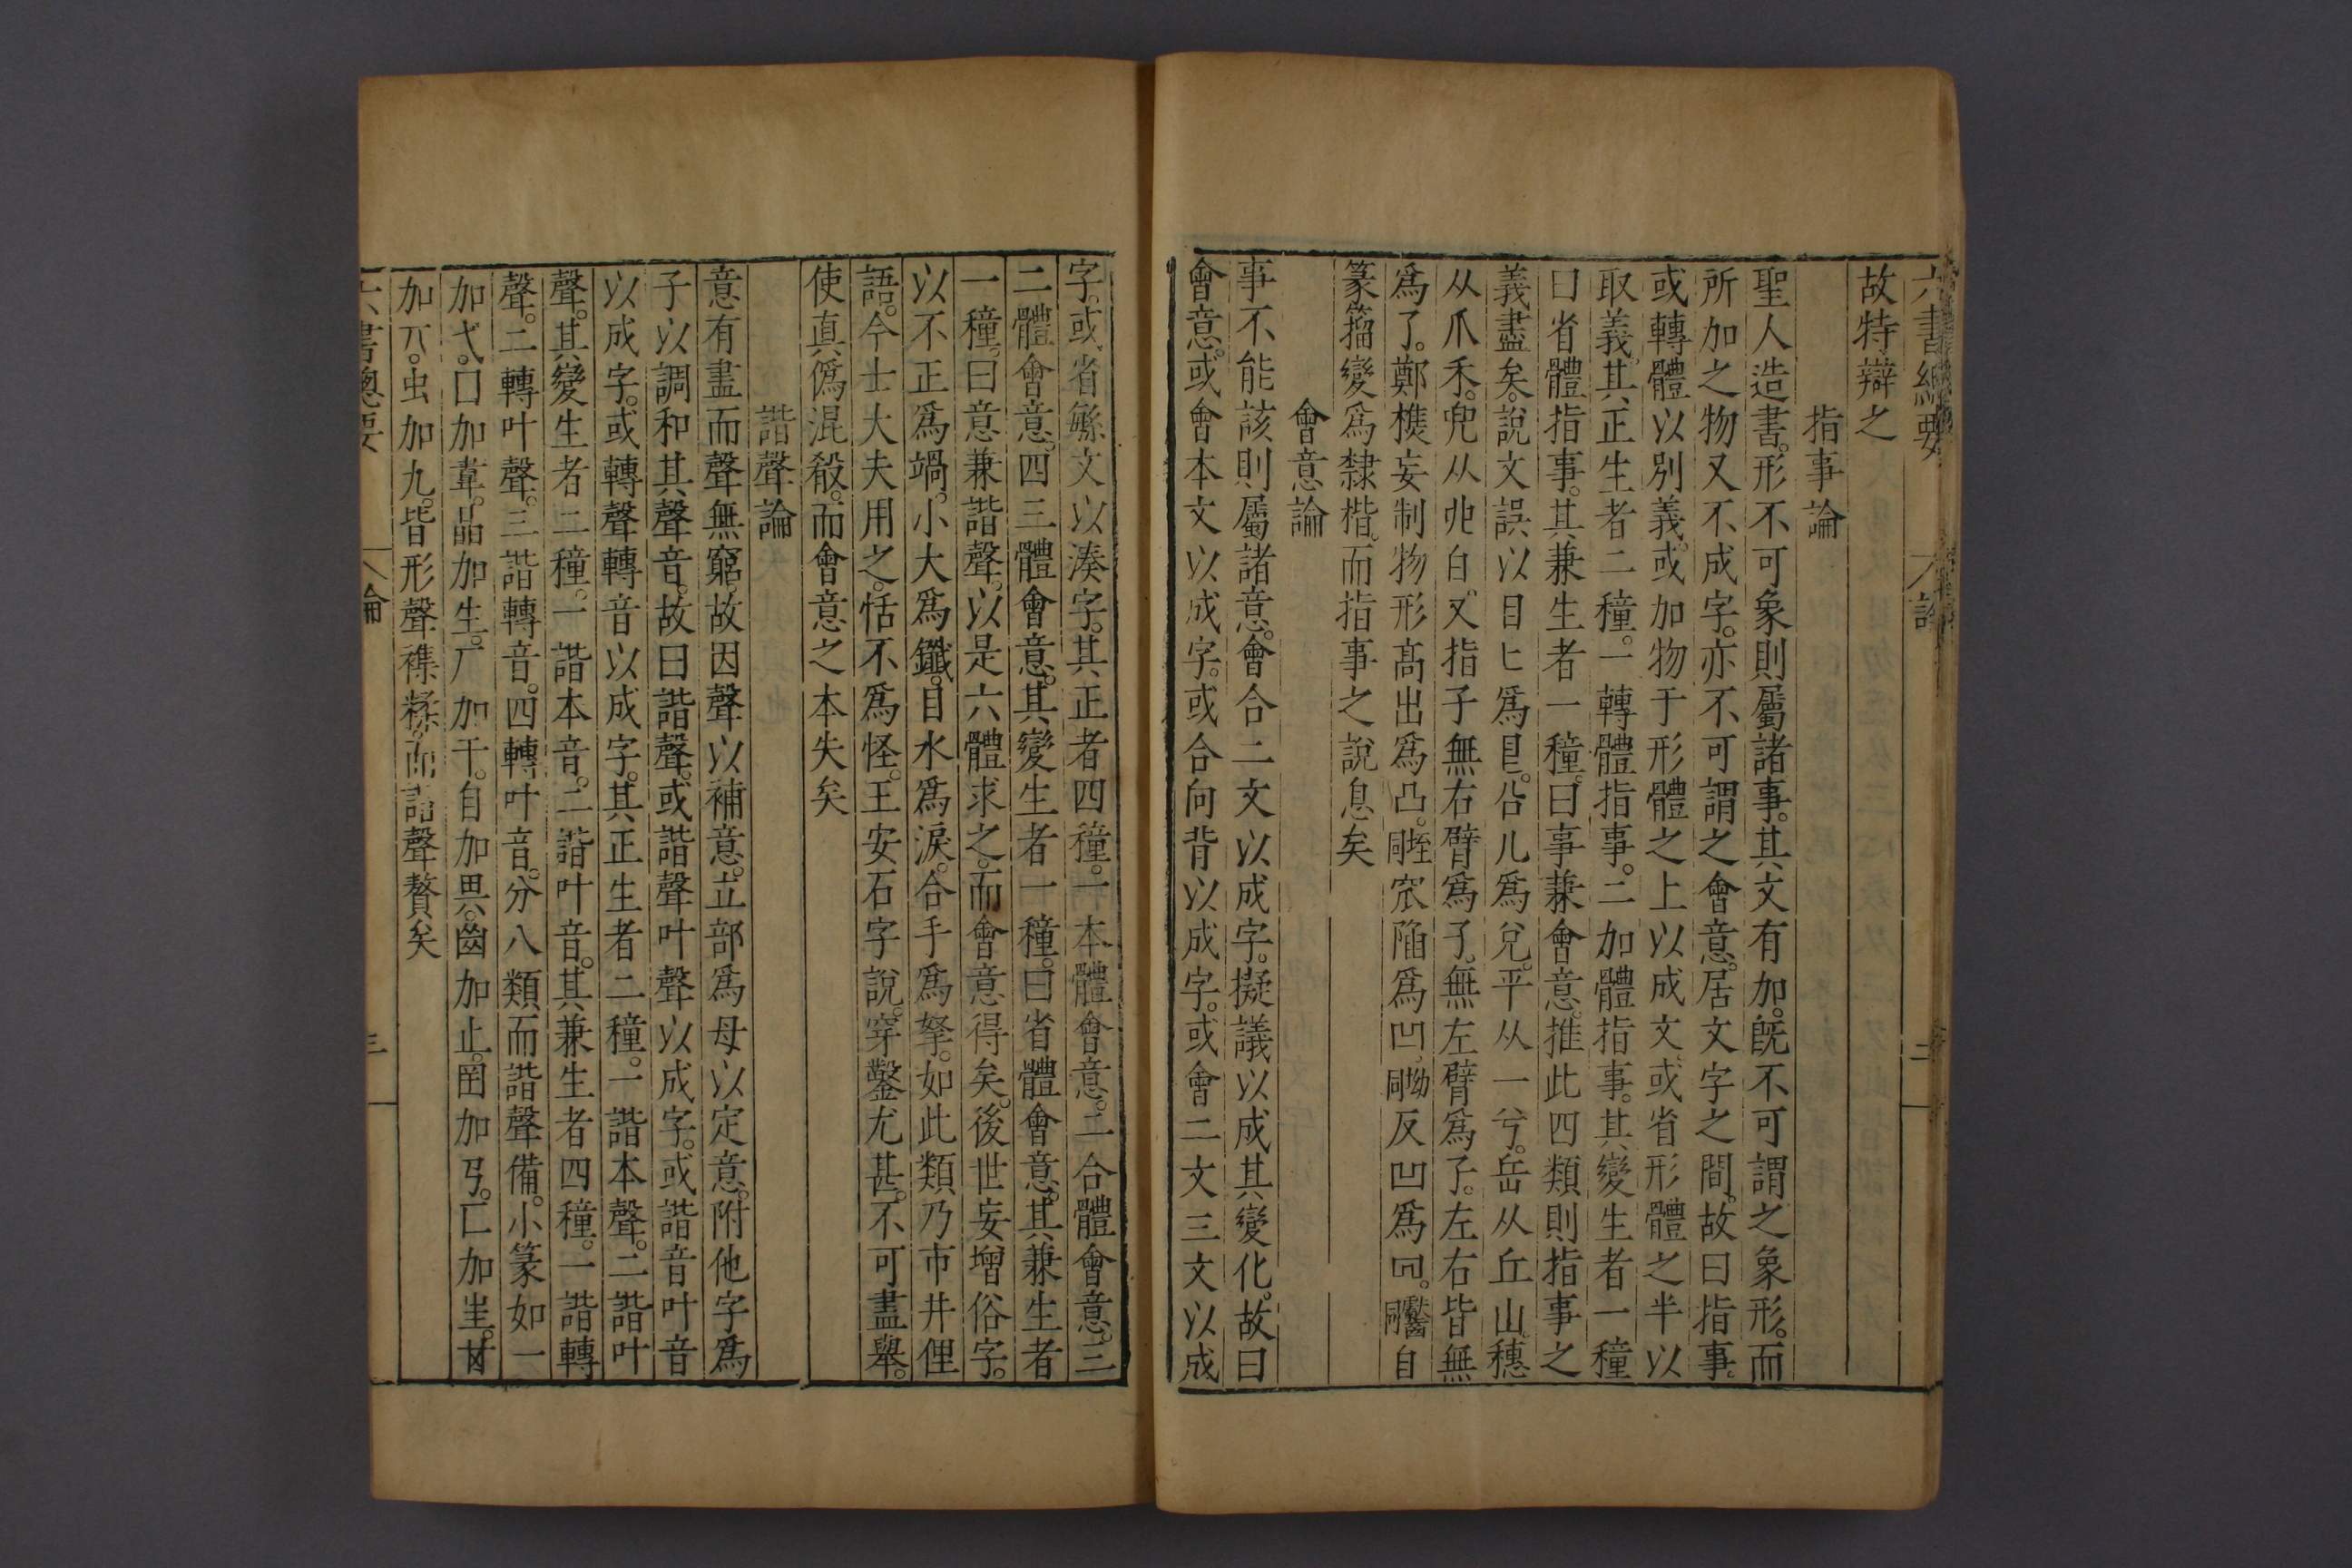 六書總要 論 二
故特辯之
指事論
聖人造書。形不可象則屬諸事。其文有加。旣不可謂之象形。而
所加之物又不成字。亦不可謂之會意。居文字之間。故曰指事。
或轉體以別義。或加物于形體之上以成文。或省形體之半以
取義。其正生者二種。一轉體指事。二加體指事。其變生者一種
曰省體指事。其兼生者一種。曰事兼會意。推此四類則指事之
義盡矣。說文誤以目匕爲㫐。㕣儿爲兌。平从一兮。岳从丘山。穗
从爪禾。兜从𠑹白。又指子無右臂爲孑。無左臂爲孓。左右皆無
爲了。鄭樵妄制物形高出爲凸。窊陷爲凹。反凹爲自
篆籀變爲隸楷。而指事之說息矣
會意論
事不能該則屬諸意。會合二文以成字。擬議以成其變化。故曰
會意。或會本文以成字。或合向背以成字。或會二文三文以成
字。或省緐文以湊字。其正者四種。一本體會意。二合體會意。三
二體會意。四三體會意。其變生者一種。曰省體會意。其兼生者
一種。曰意兼諧聲。以是六體求之。而會意得矣。後世妄增俗字。
以不正爲竵。小大爲㦰。目水爲淚。合手爲拏。如此類乃市井俚
語。今士大夫用之。恬不爲怪。王安石字說。穿鑿尤甚。不可盡舉。
使真僞混殽。而會意之本失矣
諧聲論
意有盡而聲無窮。故因聲以補意。立部爲母以定意。附他字爲
子以調和其聲音。故曰諧聲。或諧聲叶聲以成字。或諧音叶音
以成字。或轉聲轉音以成字。其正生者二種。一諧本聲。二諧叶
聲。其變生者二種。一諧本音。二諧叶音。其兼生者四種。一諧轉
聲。二轉叶聲。三諧轉音。四轉叶音。分八類而諧聲備。小篆如一
加弋。囗加韋。晶加生。厂加干。自加畀。齒加止。㘝加丂。匚加㞷。𠀠
加丌。虫加九。皆形聲襍糅。而諧聲贅矣
六書總要 論 三